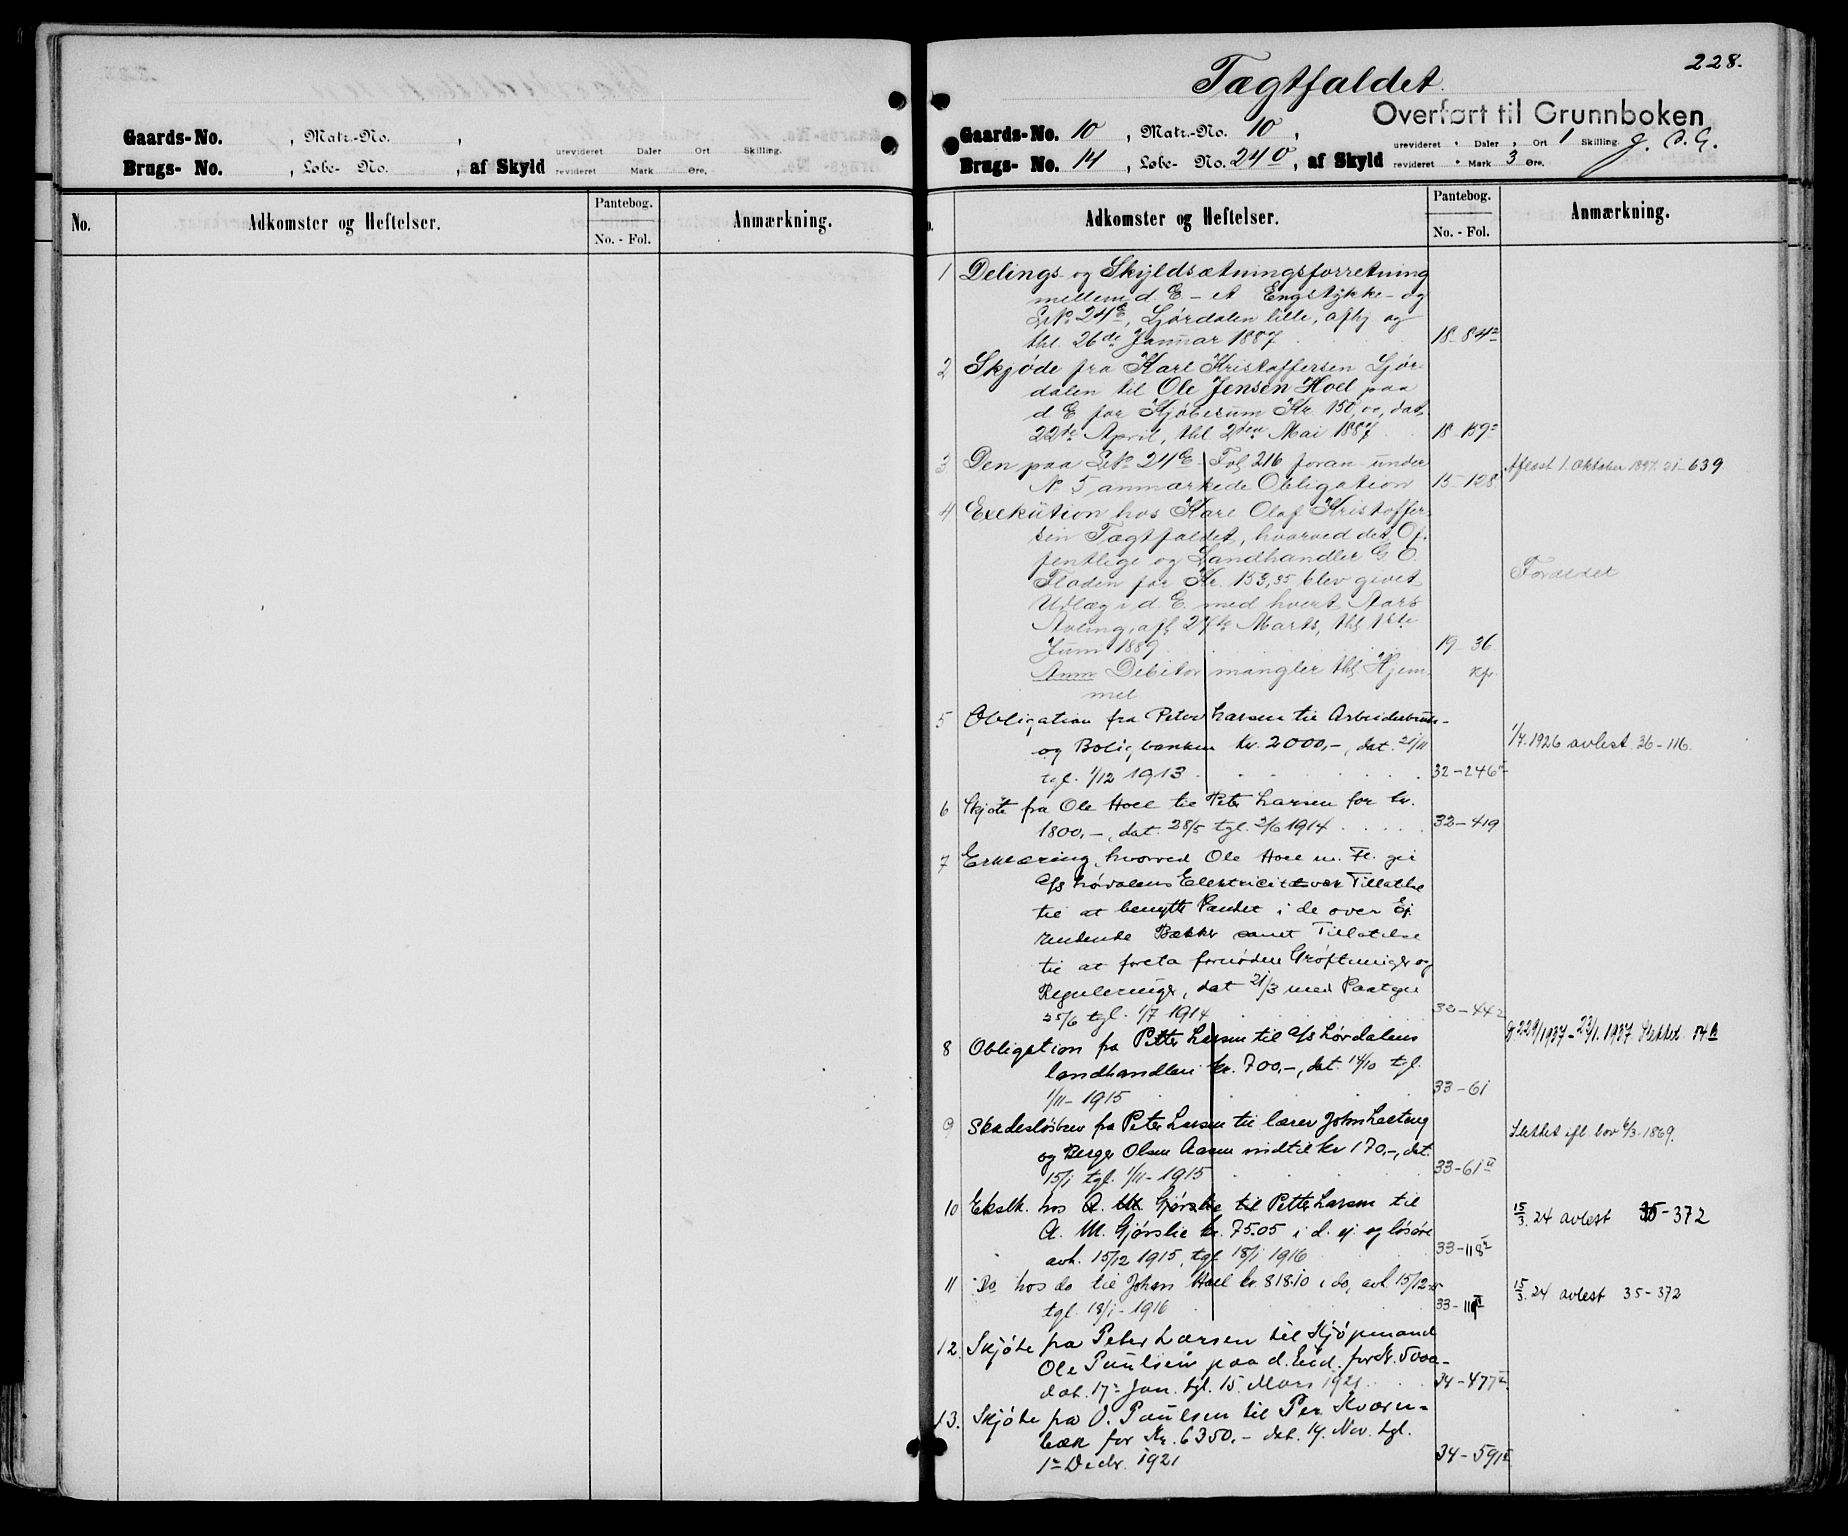 Gaards-No. , Matr.-No. ,
Brugs- No. , Løbe- No. , af Skyld urevideret Daler Ort Skilling.
revideret Mark Øre.
No. Adkomster og Heftelser. Pantebog. No. - Fol. Anmærkning.
228.
Tægtfaldet.
Overført til Grunnboken
Gaards-No. 10, Matr.-No. 10,
Brugs- No. 14, Løbe- No. 24 O, af Skyld urevideret " Daler , Ort 1 Skilling.
revideret " Mark 3 Øre.
No. Adkomster og Heftelser. Pantebog. No. - Fol. Anmærkning.
1 Delings- og Skyldsætningsforretning
mellem d. E - et Engstykke - og
LNo 24 E, Ljørdalen lille, afhj og
thl. 26de Januar 1887 18-84
2 Skjøde fra Karl Kristoffersen Ljør-
dalen til Ole Jensen Hoel paa
d E for Kjøbesum Kr. 150,00, dat.
22de April, thl 2den Mai 1887 18-159
3 Den paa LNo 24 E Fol 216 foran under
No 5 anmærkede Obligation 15-128 Aflæst 1. Oktober 1897. 21-639
4 Exekution hos Karl Olaf Kristoffer-
sen Tægtfaldet, hvorved det Of-
fentlige og Landhandler G O
Fladen for Kr. 153,35 blev givet Forældet
Udlæg i d. E. med hvert Aars
Avling, afh. 27de Marts, thl 1ste
Juni 1889 19-36
Anm Debitor mangler thl. Hjem-
mel
5 Obligation fra Peter Larsen til Arbeiderbruk-
og Boligbanken kr. 2000,-, dat. 21/11 1/7.1926 avlest 36-116.
tgl. 1/12 1913 32-246
6 Skjøte fra Ole Hoel til Peter Larsen for kr.
1800,-, dat. 28/5 tgl. 2/6 1914 32-419
7 Erklæring, hvorved Ole Hoel m. Fl. gir
A/S Lørdalens Electricitetsver Tillatelse
til at benytte Vandet i de over Ej.
rendende Bækker samt Tillatelse
til at foreta fornødne Grøftninger og
Reguleringer, dat 21/3 med Paategn
25/6 tgl. 1/7 1914 32-442
8 Obligation fra Petter Larsen til A/S Lørdalens 229/1937-23/1.1937. Slettet
landhandleri kr. 700,-, dat. 14/10 tgl.
1/11-1915 33-61
9 Skadesløsbrev fra Peter Larsen til lærer John
og Berger Olsen Aasen indtil kr 170,-, dat. Slettet ifl. lov 6/3-1869.
15/1 tgl. 1/11-1915 33-61 II
10 Ekstk. hos A. M. Gjørslie til Petter Larsen til 15/3.24 avlest 35-372
A. M. Gjørslie kr. 75.05 i d. ej. og løsøre
avh. 15/12 1915, tgl 18/1 1916 33-118
11 Do hos do til Johan Hoel kr 818.10 i do, avh 15/12-15 15/3.24 avlest 35-372
tgl. 18/1-1916
12. Skjøte fra Peter Larsen til Kjøpmand
Ole Paulsen paa d. Eiend. for Kr. 5000-
dat. 17de Jan. tgl. 15. Mars 1921 34-477
13. Skjøte fra O. Paulsen til Per Kværn-
bæk for Kr. 6350.- dat. 19. Nov. tgl.
1ste Decbr. 1921 34-591